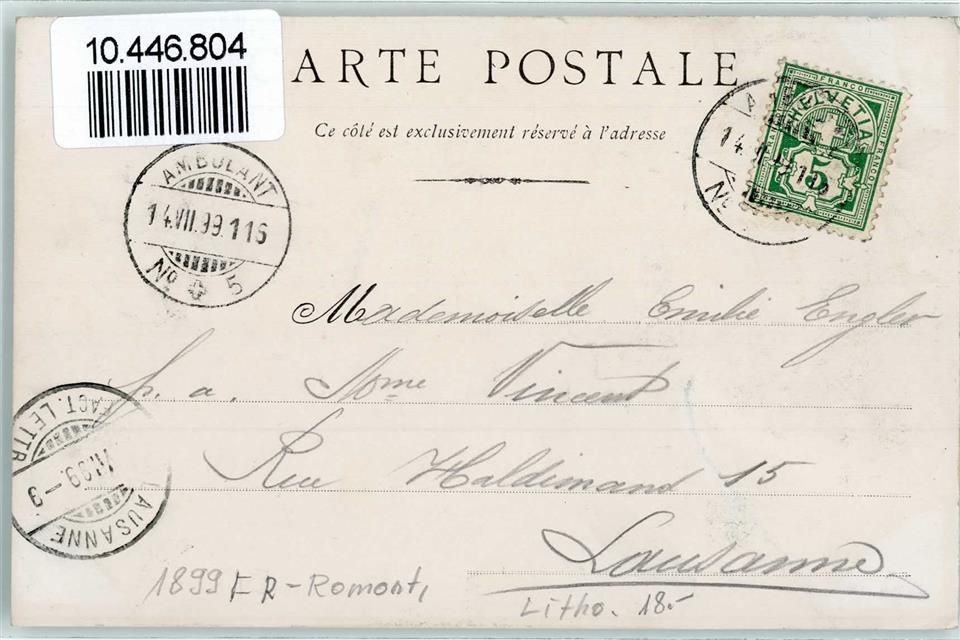 10.446.804
ARTE POSTALE
Ce côté est exclusivement réservé à l'adresse
FRANCO
HELVETIA
FRANCO
5
AMBULANT
14.VII.99.116
No 5
Mademoiselle Emilie Engler
p. a. Mme Vincent
Rue Haldimand 15
Lausanne
LAUSANNE
FACT. LETTR
VII.99.-9
1899 FR-Romont,
Litho. 18.-